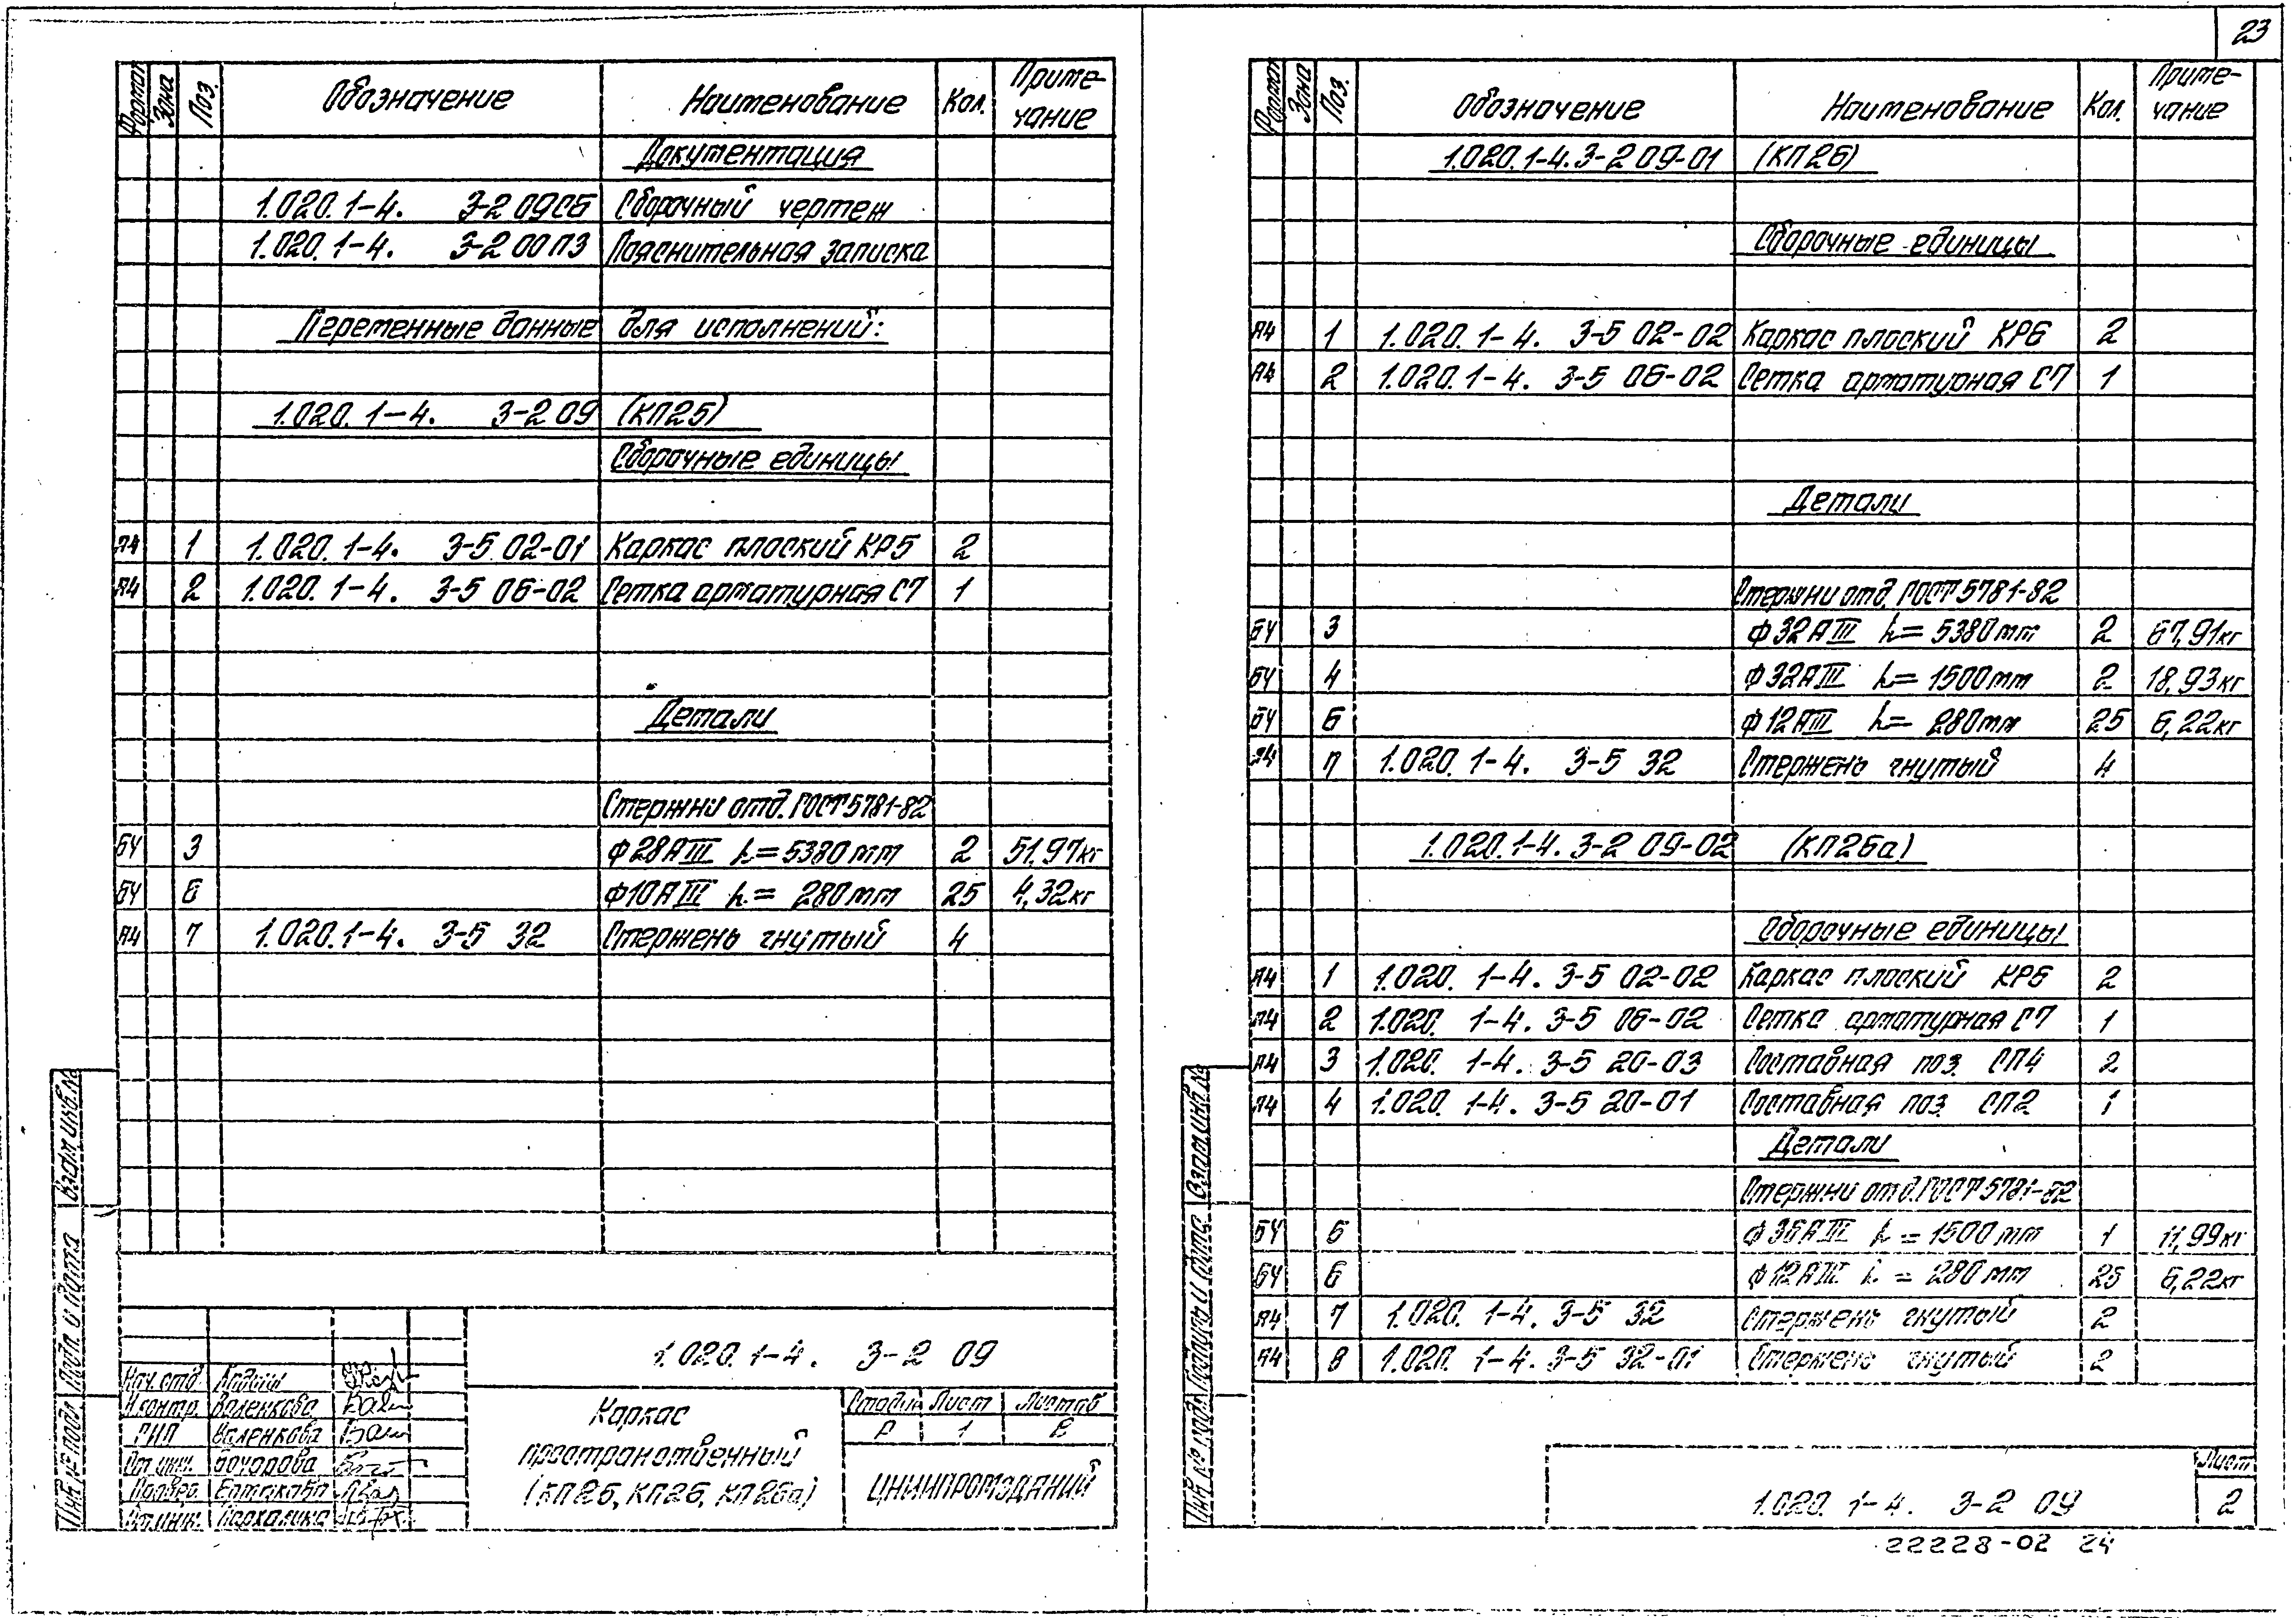 23
Формат Зона Поз. Обозначение Наименование Кол. Приме-
чание
Документация
1.020.1-4. 3-2 09СБ Сборочный чертеж
1.020.1-4. 3-2 00ПЗ Пояснительная записка
Переменные данные для исполнений:
1.020.1-4. 3-2 09 (КП25)
Сборочные единицы
А4 1 1.020.1-4. 3-5 02-01 Каркас плоский КР5 2
А4 2 1.020.1-4. 3-5 06-02 Сетка арматурная С7 1
Детали
Стержни отд. ГОСТ 5781-82
БЧ 3 Ф28АIII L=5380мм 2 51,97кг
БЧ 6 Ф10АIII L= 280мм 25 4,32кг
А4 7 1.020.1-4. 3-5 32 Стержень гнутый 4
Взам.инв.№
Подп. и дата
Инв.№ подл.
1.020.1-4. 3-2 09
Нач.отд.
Н.контр. Валенкова
ГИП Валенкова
Ст.инж. Бочорова
Провер. Ермакова
Ст.инж.
Каркас
пространственный
(КП25, КП26, КП26а)
Стадия Лист Листов
Р 1 2
ЦНИИПРОМЗДАНИЙ
Формат Зона Поз. Обозначение Наименование Кол. Приме-
чание
1.020.1-4.3-2 09-01 (КП26)
Сборочные единицы
А4 1 1.020.1-4. 3-5 02-02 Каркас плоский КР6 2
А4 2 1.020.1-4. 3-5 06-02 Сетка арматурная С7 1
Детали
Стержни отд. ГОСТ 5781-82
БЧ 3 Ф32АIII L= 5380мм 2 67,91кг
БЧ 4 Ф32АIII L= 1500мм 2 18,93кг
БЧ 6 Ф12АIII L= 280мм 25 6,22кг
А4 7 1.020.1-4. 3-5 32 Стержень гнутый 4
1.020.1-4.3-2 09-02 (КП26а)
Сборочные единицы
А4 1 1.020. 1-4. 3-5 02-02 Каркас плоский КР6 2
А4 2 1.020. 1-4. 3-5 06-02 Сетка арматурная С7 1
А4 3 1.020. 1-4. 3-5 20-03 Составная поз. СП4 2
А4 4 1.020. 1-4. 3-5 20-01 Составная поз. СП2 1
Детали
Стержни отд. ГОСТ 5781-82
БЧ 5 Ф36АIII L = 1500 мм 1 11,99кг
БЧ 6 Ф12АIII L = 280 мм 25 6,22кг
А4 7 1.020. 1-4. 3-5 32 Стержень гнутый 2
А4 8 1.020. 1-4. 3-5 32-01 Стержень гнутый 2
Взам.инв.№
Подпись и дата
Инв.№ подл.
1.020. 1-4. 3-2 09
Лист
2
22228-02 24